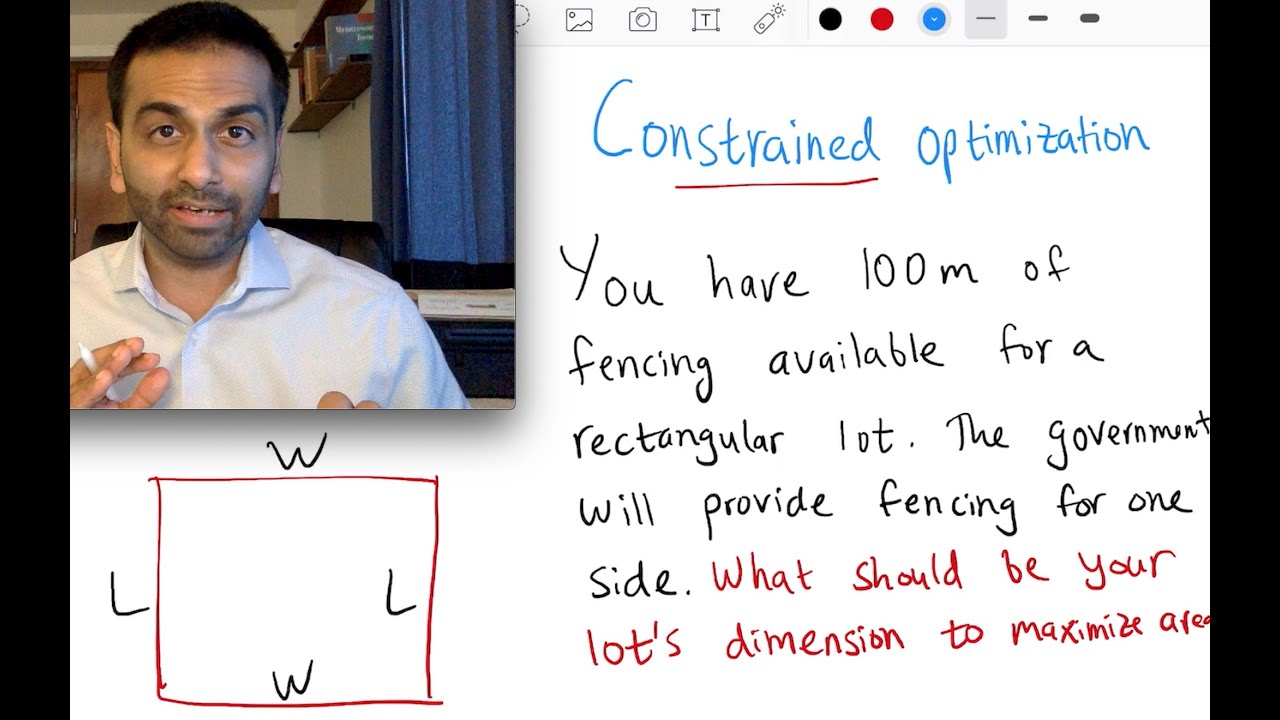 T
Constrained optimization
You have 100m of
fencing available for a
rectangular lot. The government
will provide fencing for one
side. What should be your
lot's dimension to maximize area
W
L
L
W